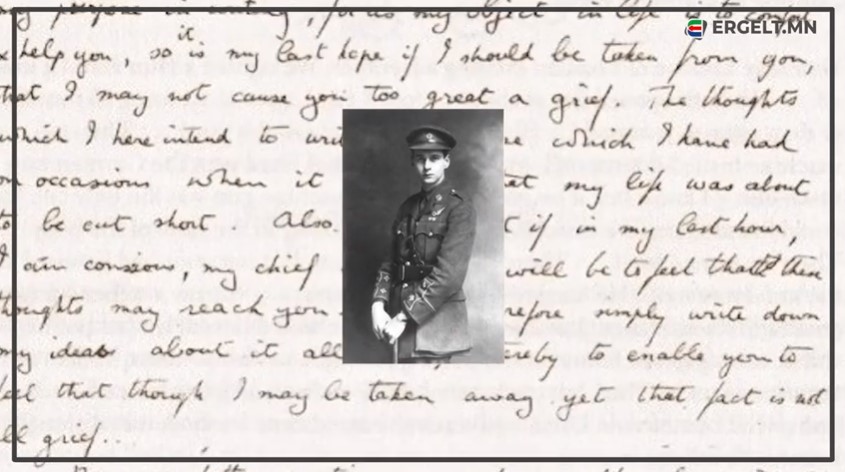 ERGELT.MN
my purpose in writing, for as my object in life is to comfort
& help you so is my last hope if I should be taken from you
it
that I may not cause you too great a grief. The thoughts
which I here intend to which I have had
on occasions when it my life was about
to be cut short. Also if in my last hour,
I am conscious, my chief will be to feel that these
thoughts may reach you simply write down
my ideas about it all to enable you to
feel that though I may be taken away yet that fact is not
all grief.